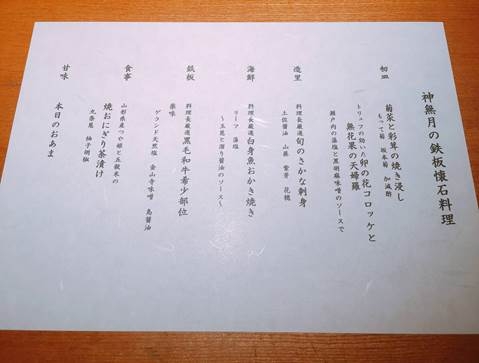 神無月の鉄板懐石料理
初皿
菊菜と彩茸の焼き浸し
もって菊 坂本菊 加減酢
トリュフの匂い 卯の花コロッケと
無花果の天婦羅
瀬戸内の藻塩と黒胡麻味噌のソースで
造里
料理長厳選 旬のさかな刺身
土佐醤油 山葵 紫芽 花穂
海鮮
料理長厳選 白身魚おかき焼き
リーフ 藻塩
〜玉葱と溜り醤油のソース〜
鉄板
料理長厳選 黒毛和牛希少部位
薬味
ゲランド天然塩 金山寺味噌 島醤油
食事
山形県産つや姫と五穀米の
焼おにぎり茶漬け
九条葱 柚子胡椒
甘味
本日のおあま